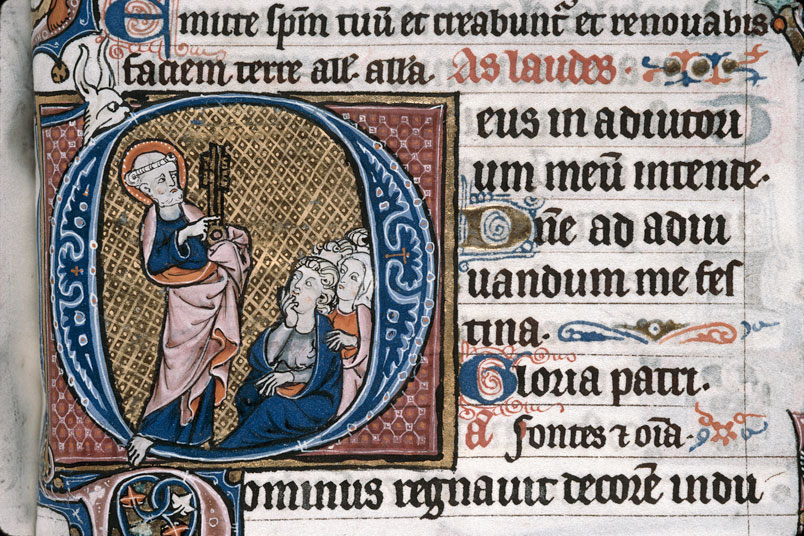 Emitte sp̄m tuū et creabunt᷑ et renouabis
faciem terre all̄. all̄a. As laudes.
Deus in adiutori
um meū intende.
Dn̄e ad adiu
uandum me fes
tina.
Gloria patri.
a fontes ⁊ oīa.
Dominus regnauit decorē indu